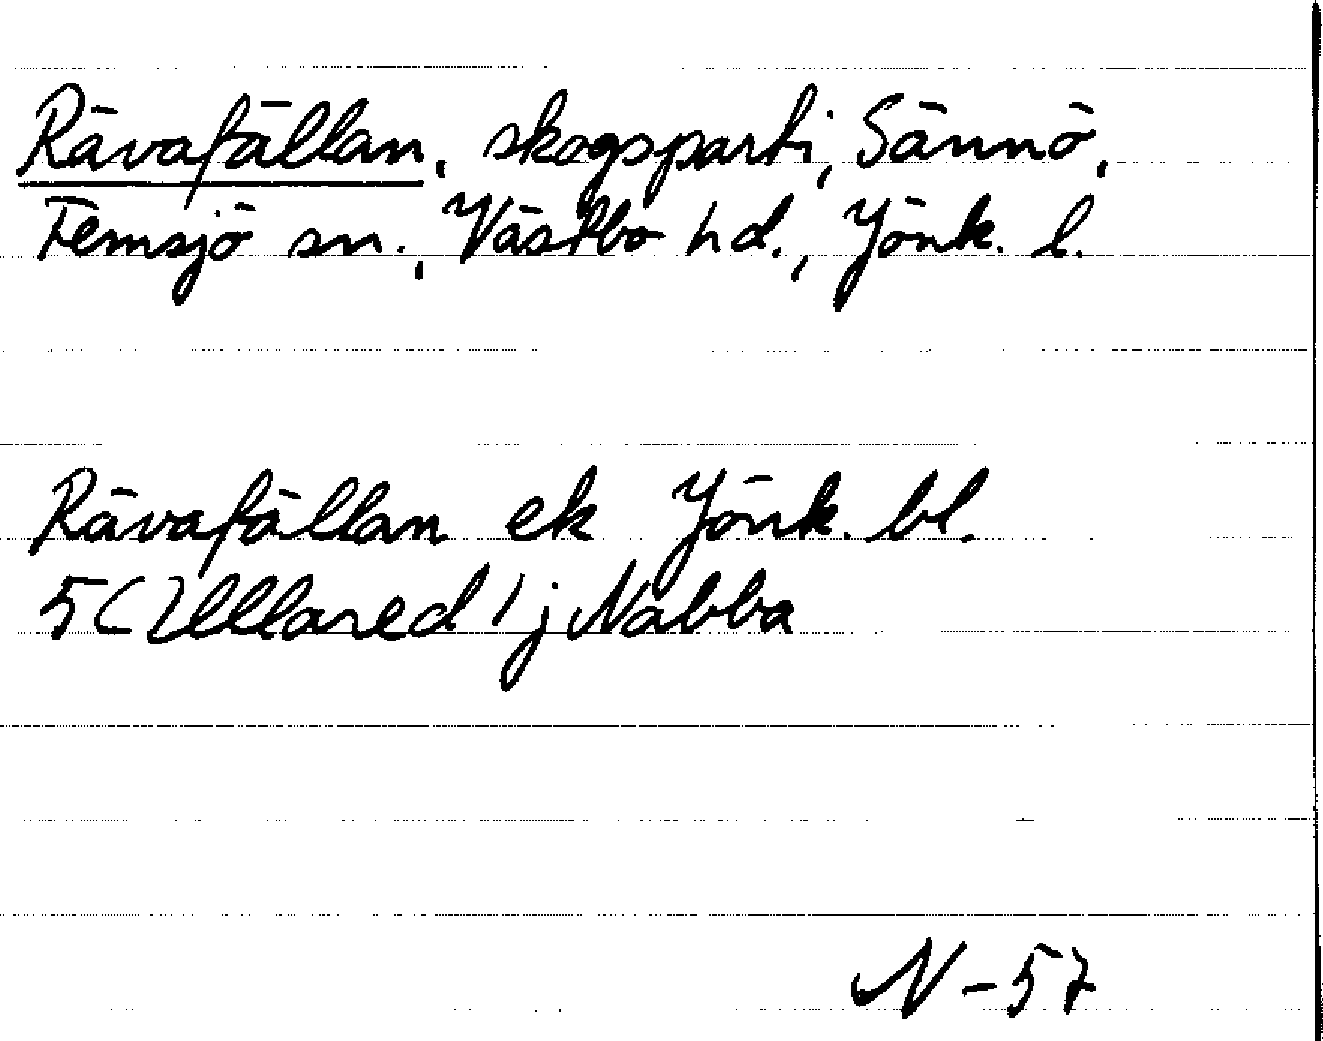 Rävafällan, skogsparti, Sännö,
Femsjö sn., Västbo hd., Jönk. l.
Rävafällan ek Jönk. bl.
5 (Ullared); Nabba
N-57